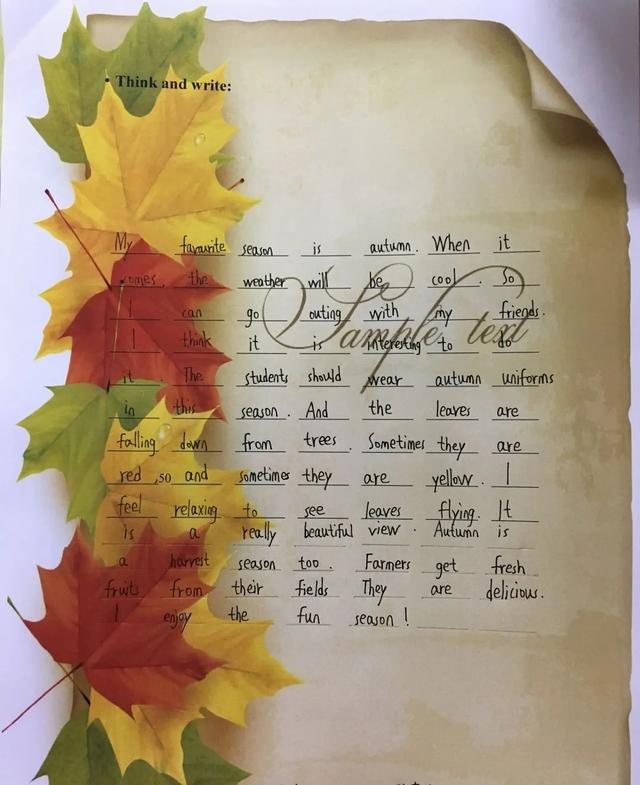 • Think and write:
My favourite season is autumn. When it
comes, the weather will be cool. So
I can go outing with my friends.
I think it is interesting to do
it The students should wear autumn uniforms
in this season. And the leaves are
falling down from trees. Sometimes they are
red ,so and sometimes they are yellow. I
feel relaxing to see leaves flying. It
is a really beautiful view. Autumn is
a harvest season too. Farmers get fresh
fruits from their fields They are delicious.
I enjoy the fun season!
Sample text